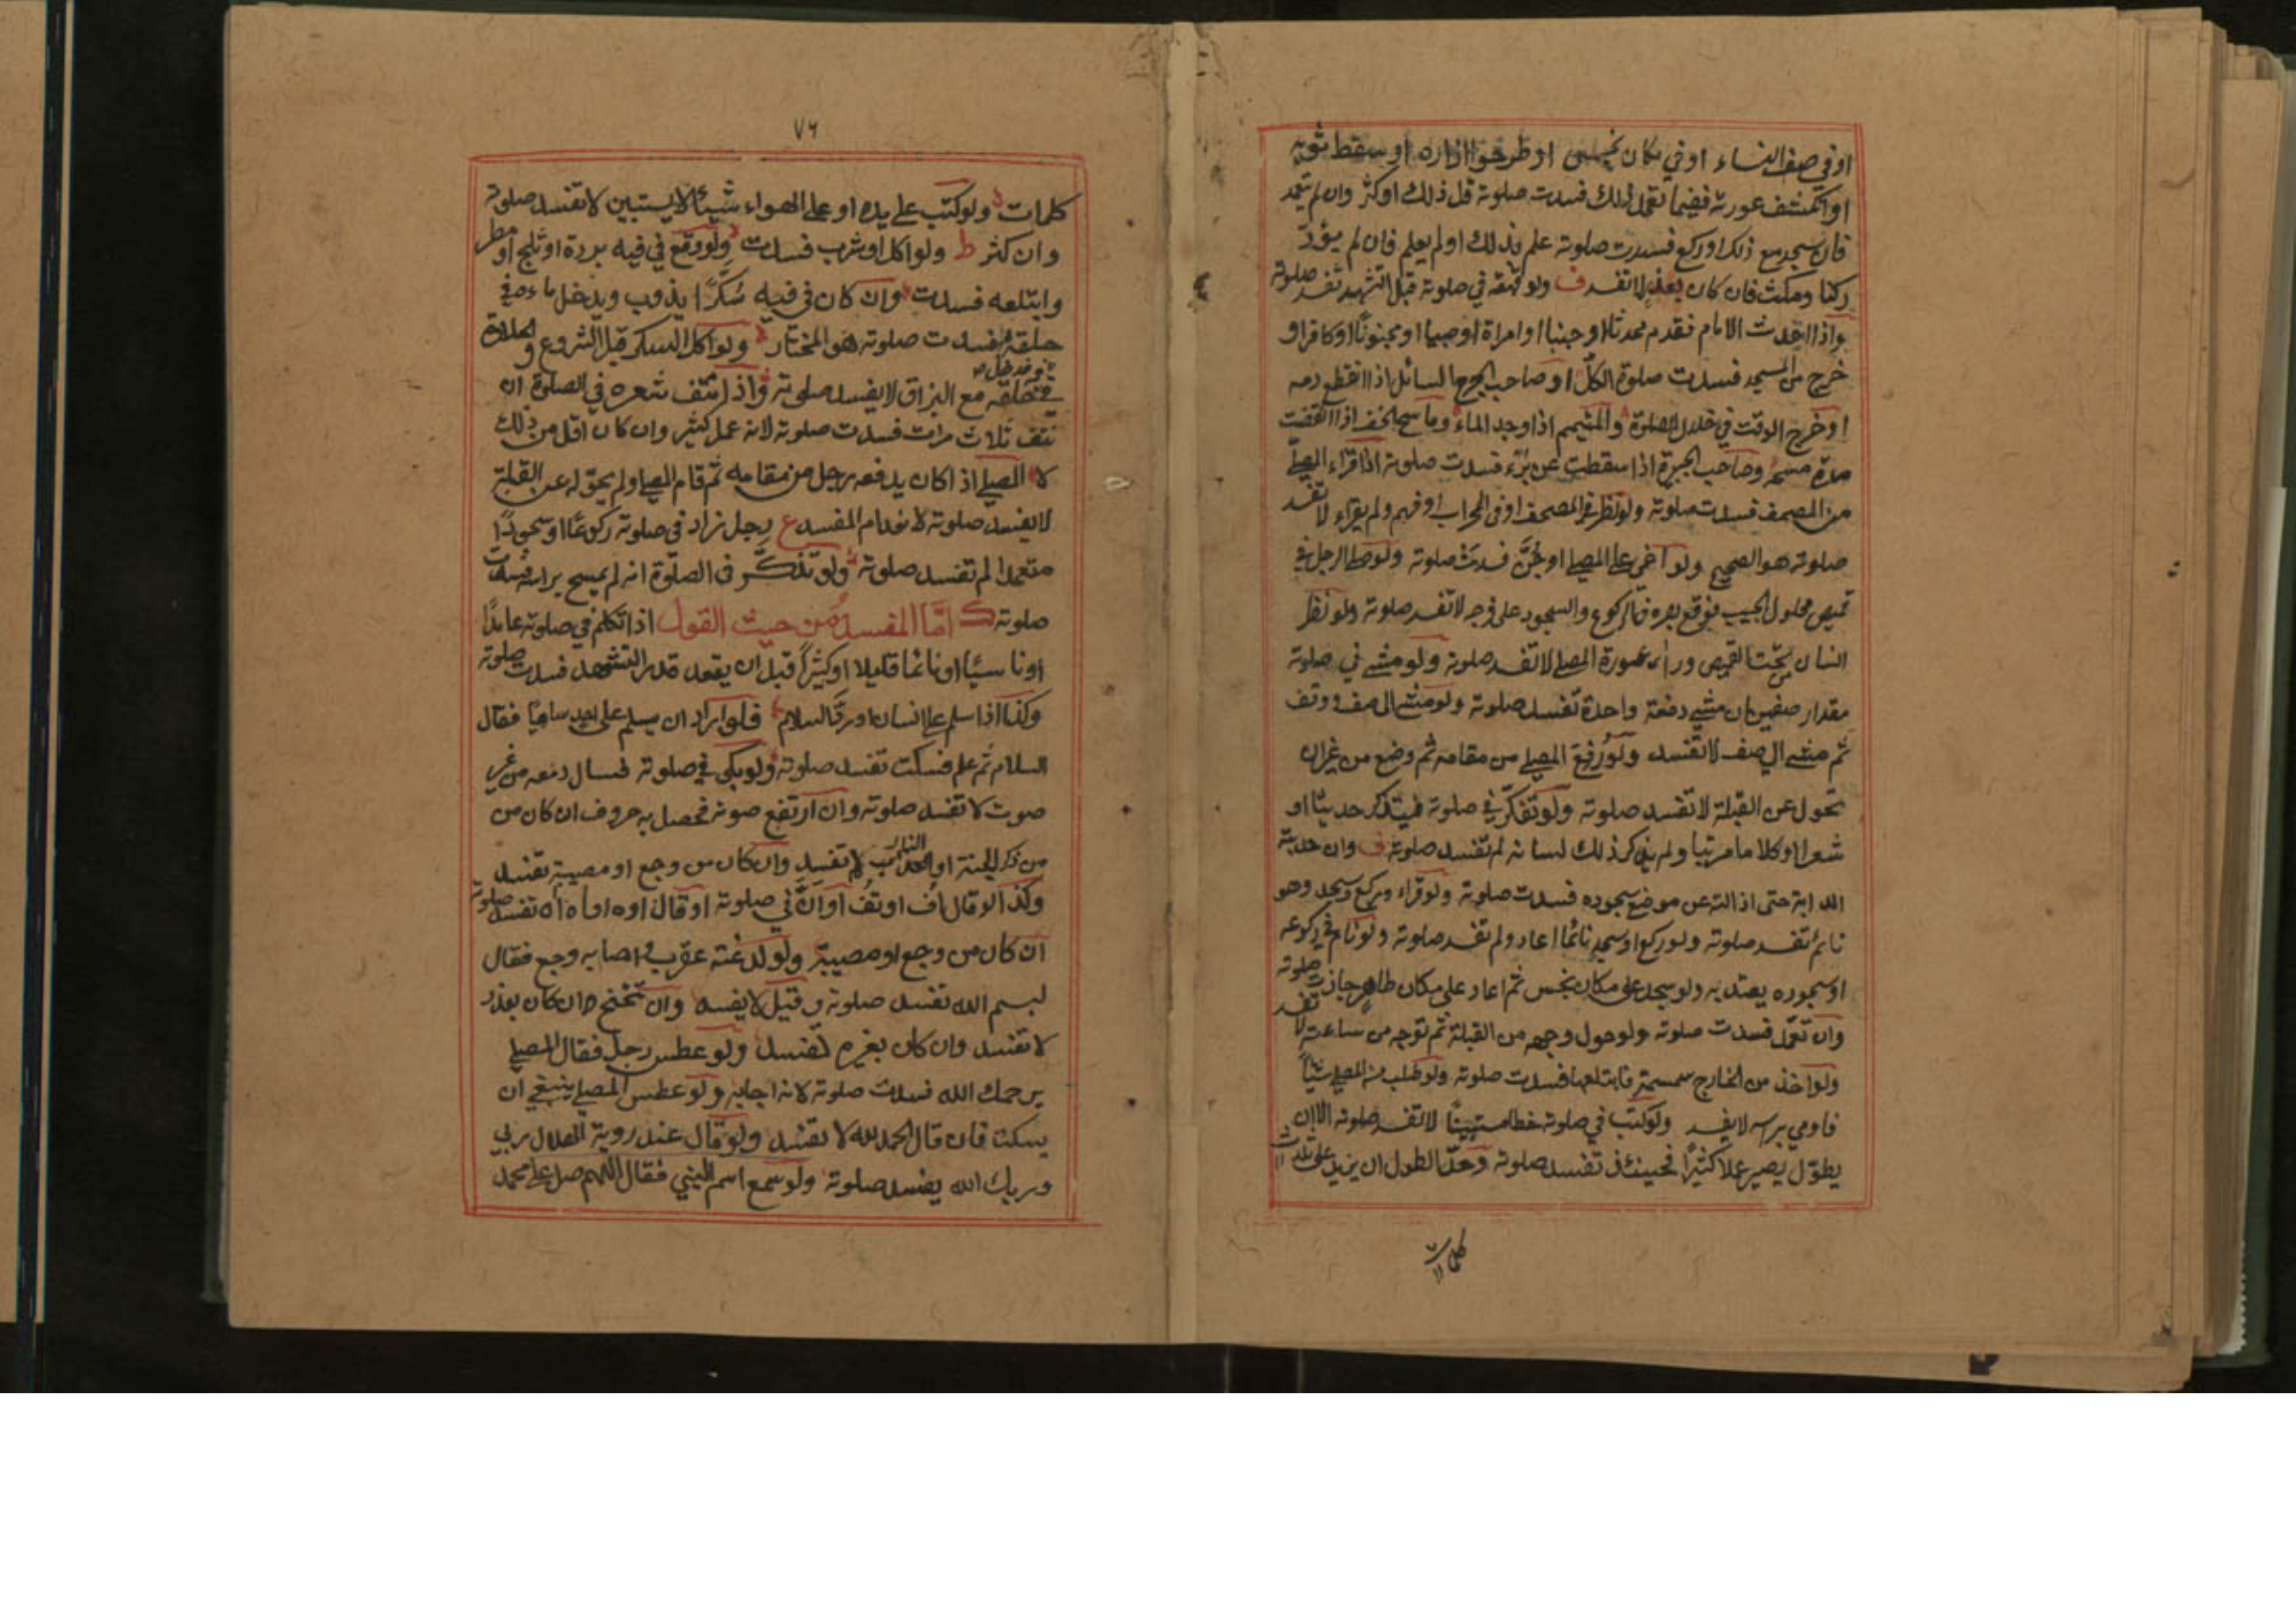 او في صف النساء او في مكان نجس او طرحوا ازاره او سقط ثوبه
او انكشف عورته ففيما تعمد ذلك فسدت صلوته قل ذلك او كثر وان لم يتعمد
فان سجد مع ذلك او ركع فسدت صلوته علم بذلك او لم يعلم فان لم يؤد
ركنا ومكث فان كان بعذر لا تفسد ف ولو قهقه في صلوته قبل التشهد تفسد صلوته
واذا احدث الامام فقدم محدثا او جنبا او امراة او صبيا او مجنونا او كافرا و
خرج من المسجد فسدت صلوة الكل او صاحب الجرح السائل اذا انقطع دمه
او خرج الوقت في خلال الصلوة والمتيمم اذا وجد الماء وماسح الخف اذا انقضت
مدة مسحه وصاحب الجبيرة اذا سقطت عن برء فسدت صلوته اذا قراء المصلي
من المصحف فسدت صلوته ولو نظر في المصحف او في المحراب او فهم ولم يقراء لا تفسد
صلوته هو الصحيح ولو اغمي على المصلي او جن فسدت صلوته ولو صلى الرجل في
قميص محلول الجيب فوقع بصره في الركوع والسجود على فرجه لا تفسد صلوته ولو نظر
انسان من تحت القميص وراى عورة المصلي لا تفسد صلوته ولو مشى في صلوته
مقدار صفين ان مشى دفعة واحدة تفسد صلوته ولو مشى الى صف ووقف
ثم مشى الى صف لا تفسد ولو رفع المصلي من مقامه ثم وضع من غير ان
تحول عن القبلة لا تفسد صلوته ولو تفكر في صلوته فيتذكر حديثا او
شعرا او كلاما مرتبا ولم يذكر ذلك لسانه لم تفسد صلوته ف وان جذبته
الدابة حتى ازالته عن موضع سجوده فسدت صلوته ولو قراء وركع وسجد وهو
نائم تفسد صلوته ولو ركع او سجد نائما اعاد ولم تفسد صلوته ولو نام في ركوعه
او سجوده يعتد به ولو سجد على مكان نجس ثم اعاد على مكان طاهر جازت صلوته
وان تعمد فسدت صلوته ولو حول وجهه من القبلة ثم توجه من ساعته لا تفسد
ولو اخذ من الخارج سمسمة فابتلعها فسدت صلوته ولو طلب من المصلي شيئا
فاومى براسه لا يفسد ولو كتب في صلوته خطا مستبينا لا تفسد صلوته الا ان
يطول يصير عملا كثيرا فحينئذ تفسد صلوته وحد الطول ان يزيد على ثلاث
كلمات
٧٦
كلمات ولو كتب على يده او على الهواء شيئا لا يستبين لا تفسد صلوته
وان كثر ط ولو اكل او شرب فسدت ولو وقع في فيه بردة او ثلج او مطر
وابتلعه فسدت وان كان في فيه سكرا يذوب ويدخل ماءه في
حلقه فسدت صلوته هو المختار ولو اكل السكر قبل الشروع والحلاوة
في حلقه مع البزاق لا يفسد صلوته واذا نتف شعره في الصلوة ان
نتف ثلاث مرات فسدت صلوته لانه عمل كثير وان كان اقل من ذلك
لا المصلي اذا كان يدفعه رجل من مقامه ثم قام المصلي ولم يحول عن القبلة
لا يفسد صلوته لانعدام المفسد ع رجل زاد في صلوته ركوعا او سجودا
متعمدا لم تفسد صلوته ولو تذكر في الصلوة انه لم يمسح براسه فسدت
صلوته ك اما المفسد من حيث القول اذا تكلم في صلوته عامدا
او ناسيا او نائما قليلا او كثيرا قبل ان يقعد قدر التشهد فسدت صلوته
وكذا اذا سلم على انسان او رد السلام فلو اراد ان يسلم على احد ساهيا فقال
السلام ثم علم فسكت تفسد صلوته ولو بكى في صلوته فسال دمعه من غير
صوت لا تفسد صلوته وان ارتفع صوته فحصل به حروف ان كان من
من ذكر الجنة او النار لا تفسد وان كان من وجع او مصيبة تفسد
وكذا لو قال اف او تف او ان في صلوته او قال اوه او اه اه تفسد صلوته
ان كان من وجع او مصيبة ولو لدغته عقرب او اصابه وجع فقال
بسم الله تفسد صلوته وقيل لا يفسد وان تنحنح ان كان بعذر
لا تفسد وان كان بغيره تفسد ولو عطس رجل فقال المصلي
يرحمك الله فسدت صلوته لانه اجابه ولو عطس المصلي ينبغي ان
يسكت فان قال الحمد لله لا تفسد ولو قال عند روية الهلال ربي
وربك الله يفسد صلوته ولو سمع اسم النبي فقال اللهم صل على محمد